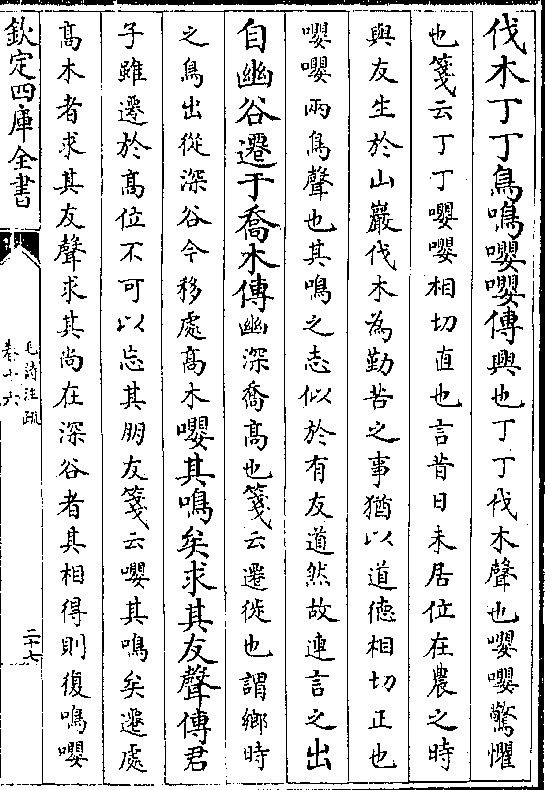 伐木丁丁鳥鳴嚶嚶傳興也丁丁伐木聲也嚶嚶驚懼
也箋云丁丁嚶嚶相切直也言昔日未居位在農之時
與友生於山巖伐木為勤苦之事猶以道德相切正也
嚶嚶兩鳥聲也其鳴之志似於有友道然故連言之出
自幽谷遷于喬木傳幽深喬髙也箋云遷徙也謂鄉時
之鳥出從深谷今移處髙木嚶其鳴矣求其友聲傳君
子雖遷於髙位不可以忘其朋友箋云嚶其鳴矣遷處
髙木者求其友聲求其尚在深谷者其相得則復鳴嚶
欽定四庫全書
毛詩注疏
卷十六
二十七